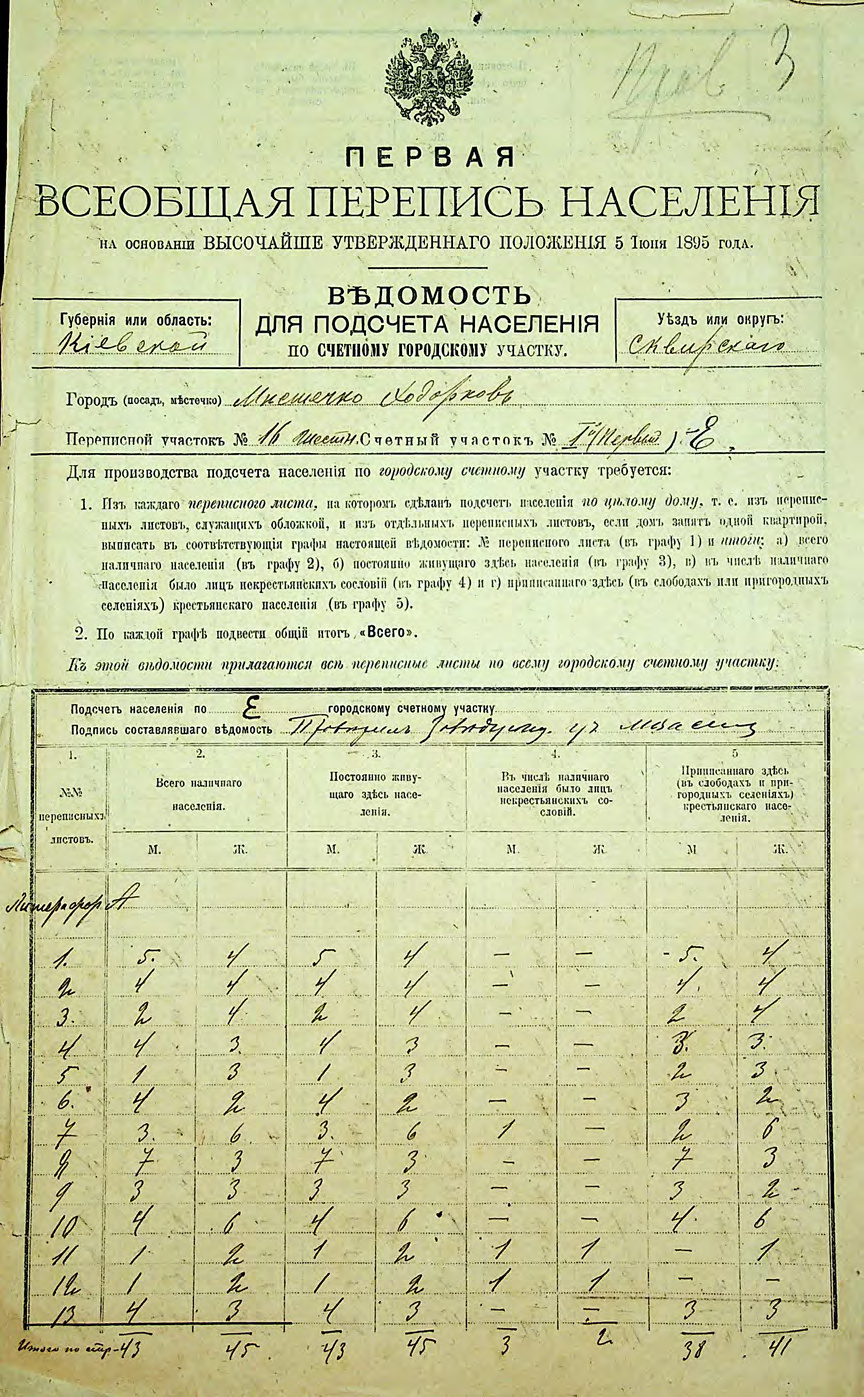 3
ПЕРВАЯ
ВСЕОБЩАЯ ПЕРЕПИСЬ НАСЕЛЕНІЯ
НА ОСНОВАНІИ ВЫСОЧАЙШЕ УТВЕРЖДЕННАГО ПОЛОЖЕНІЯ 5 Іюня 1895 ГОДА.
ВѢДОМОСТЬ
ДЛЯ ПОДСЧЕТА НАСЕЛЕНІЯ
ПО СЧЕТНОМУ ГОРОДСКОМУ УЧАСТКУ.
Губернія или область:
Кіевской
Уѣздъ или округъ:
Сквирскаго
Городъ (посадъ, мѣстечко) Мѣстечко Ходорковъ
Переписной участокъ № 16 Счетный участокъ № I й (Первый) Е
Для производства подсчета населенія по городскому счетному участку требуется:
1. Изъ каждаго переписного листа, на которомъ сдѣланъ подсчетъ населенія по цѣлому дому, т. е. изъ перепис-
ныхъ листовъ, служащихъ обложкой, и изъ отдѣльныхъ переписныхъ листовъ, если домъ занятъ одной квартирой,
выписать въ соотвѣтствующія графы настоящей вѣдомости: № переписного листа (въ графу 1) и итоги: а) всего
наличнаго населенія (въ графу 2), б) постоянно живущаго здѣсь населенія (въ графу 3), в) въ числѣ наличнаго
населенія было лицъ некрестьянскихъ сословій (въ графу 4) и г) приписаннаго здѣсь (въ слободахъ или пригородныхъ
селеніяхъ) крестьянскаго населенія (въ графу 5).
2. По каждой графѣ подвести общій итогъ «Всего».
Къ этой вѣдомости прилагаются всѣ переписные листы по всему городскому счетному участку.
Подсчетъ населенія по Е городскому счетному участку
Подпись составлявшаго вѣдомость
1. 2. 3. 4. 5
№№
переписныхъ
листовъ.
Всего наличнаго
населенія.
Постоянно живу-
щаго здѣсь насе-
ленія.
Въ числѣ наличнаго
населенія было лицъ
некрестьянскихъ со-
словій.
Приписаннаго здѣсь
(въ слободахъ и при-
городныхъ селеніяхъ)
крестьянскаго насе-
ленія.
М. Ж. М. Ж. М. Ж. М Ж.
А
1. 5. 4 5 4 — — 5. 4
2 4 4 4 4 — — 4. 4
3. 2 4 2 4 — — 2 4
4 4 3. 4 3 — — 3. 3.
5 1 3 1 3 — — 2 3.
6. 4 2 4 2 — — 3 2
7 3. 6. 3. 6 1 — 2 6
8 7 3 7 3 — — 7 3
9 3 3 3 3 — — 3 2
10 4 6 4 6 — — 4. 6
11 1 2 1 2 1 1 — 1
12 1 2 1 2 1 1 — —
13 4 3 4 3 — — 3 3
Итого по стр. 43 45. 43 45 3 2 38 41